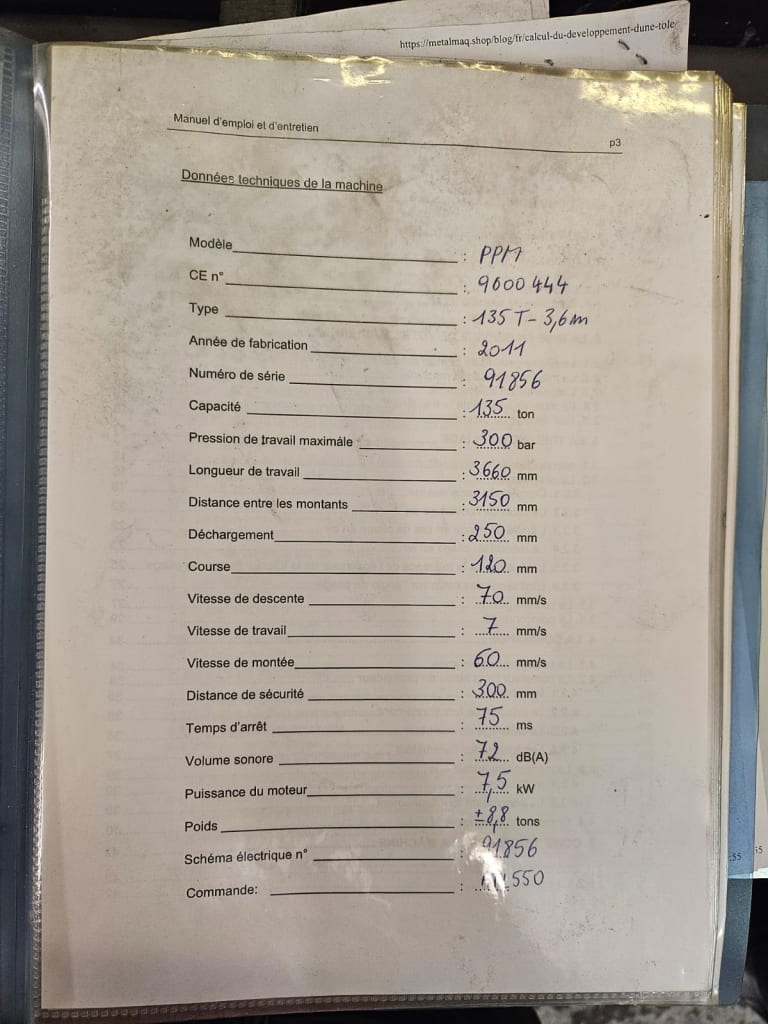 https://metalmaq.shop/blog/fr/calcul-du-developpement-dune-tole
Manuel d'emploi et d'entretien
p3
Données techniques de la machine
Modèle : PPM
CE n° : 9600444
Type : 135 T - 3,6m
Année de fabrication : 2011
Numéro de série : 91856
Capacité : 135 ton
Pression de travail maximâle : 300 bar
Longueur de travail : 3660 mm
Distance entre les montants : 3150 mm
Déchargement : 250 mm
Course : 120 mm
Vitesse de descente : 70 mm/s
Vitesse de travail : 7 mm/s
Vitesse de montée : 60 mm/s
Distance de sécurité : 300 mm
Temps d'arrêt : 75 ms
Volume sonore : 72 dB(A)
Puissance du moteur : 7,5 kW
Poids : ±8,8 tons
Schéma électrique n° : 91856
Commande: : 550